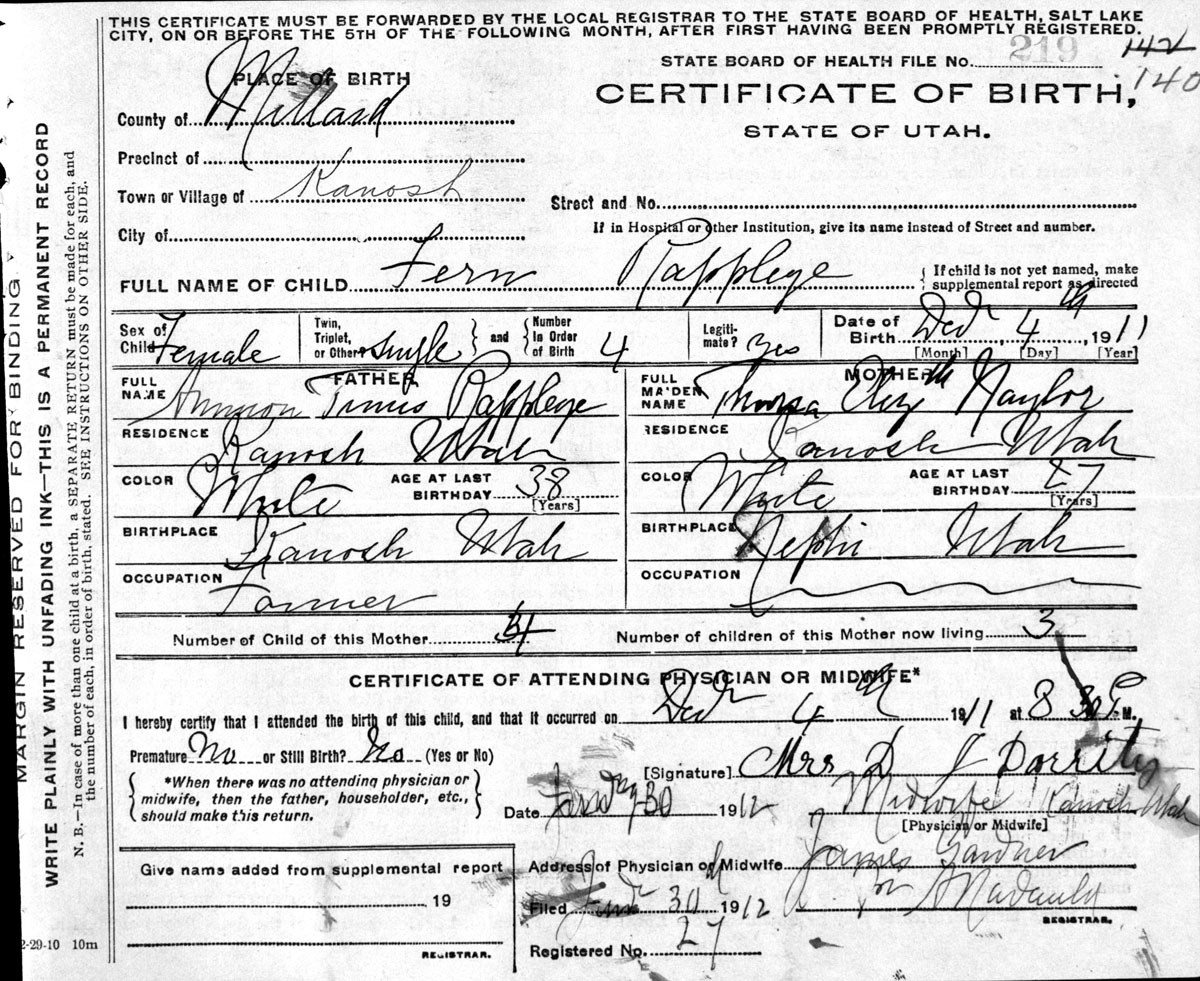 THIS CERTIFICATE MUST BE FORWARDED BY THE LOCAL REGISTRAR TO THE STATE BOARD OF HEALTH, SALT LAKE
CITY, ON OR BEFORE THE 5TH OF THE FOLLOWING MONTH, AFTER FIRST HAVING BEEN PROMPTLY REGISTERED.
STATE BOARD OF HEALTH FILE No. 219 142
140
PLACE OF BIRTH
CERTIFICATE OF BIRTH,
County of Millard
STATE OF UTAH.
Precinct of
Town or Village of Kanosh
Street and No.
City of
If in Hospital or other Institution, give its name instead of Street and number.
FULL NAME OF CHILD Fern Rapplege
{ If child is not yet named, make
supplemental report as directed
Sex of Child Female
Twin, Triplet, or Other? single } and { Number In Order of Birth 4
Legitimate? Yes
Date of Birth Dec 4th, 1911
[Month] [Day] [Year]
FATHER
FULL NAME Ammon Timus Rapplege
MOTHER
FULL MAIDEN NAME Eliz th Naylor
RESIDENCE Kanosh Utah
RESIDENCE Kanosh Utah
COLOR White AGE AT LAST BIRTHDAY 38 [Years]
COLOR White AGE AT LAST BIRTHDAY 27 [Years]
BIRTHPLACE Kanosh Utah
BIRTHPLACE Nephi Utah
OCCUPATION Farmer
OCCUPATION
Number of Child of this Mother 4
Number of children of this Mother now living 3
CERTIFICATE OF ATTENDING PHYSICIAN OR MIDWIFE*
I hereby certify that I attended the birth of this child, and that it occurred on Decr 4th 1911 at 8 30 P M.
Premature No or Still Birth? No (Yes or No)
*When there was no attending physician or
midwife, then the father, householder, etc.,
should make this return.
[Signature] Mrs D J Dorrity
Date 30 1912 Midwife Kanosh Utah
[Physician or Midwife]
Address of Physician or Midwife James Gardner
Filed 30 1912
REGISTRAR.
Registered No. 27
Give name added from supplemental report
19
REGISTRAR.
2-29-10 10m
MARGIN RESERVED FOR BINDING
WRITE PLAINLY WITH UNFADING INK—THIS IS A PERMANENT RECORD
N. B.—In case of more than one child at a birth, a SEPARATE RETURN must be made for each, and
the number of each, in order of birth, stated. SEE INSTRUCTIONS ON OTHER SIDE.